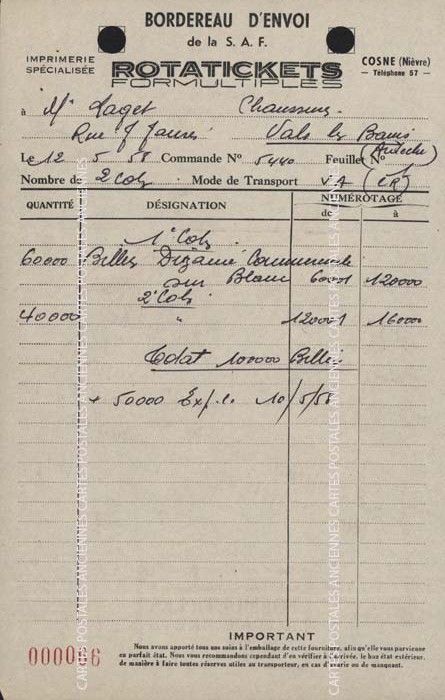 BORDEREAU D'ENVOI
de la S. A. F.
IMPRIMERIE
SPÉCIALISÉE
ROTATICKETS
FORMULTIPLES
COSNE (Nièvre)
— Téléphone 57 —
à Mr Laget Chaussures.
Rue J Jaurès Vals les Bains
(Ardèche)
Le 12 5 58 Commande No 5440 Feuillet No
Nombre de 2 Colis Mode de Transport VA (CR)
QUANTITÉ DÉSIGNATION NUMÉROTAGE
de à
1° Colis
60000 Billets Dizaine Commerciale
sur Blanc 60001 120000
2° Colis
40000 " 120001 160000
Total 100000 Billets
+ 50000 Exp. le 10/5/58
IMPORTANT
Nous avons apporté tous nos soins à l'emballage de cette fourniture, afin qu'elle vous parvienne
en parfait état. Nous vous recommandons cependant d'en vérifier à l'arrivée, le bon état extérieur,
de manière à faire toutes réserves utiles au transporteur, en cas d'avarie ou de manquant.
CARTES POSTALES ANCIENNES CARTES POSTALES ANCIENNES CARTES POSTALES ANCIENNES
CARTES POSTALES ANCIENNES CARTES POSTALES ANCIENNES CARTES POSTALES ANCIENNES